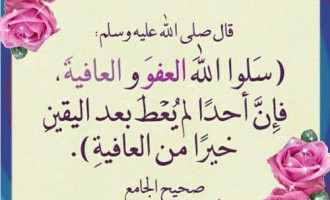 قال صلى الله عليه وسلم:
(سَلوا اللهَ العفوَ و العافيةَ،
فإنَّ أحدًا لم يُعْطَ بعد اليقينِ
خيرًا من العافيةِ).
صحيح الجامع